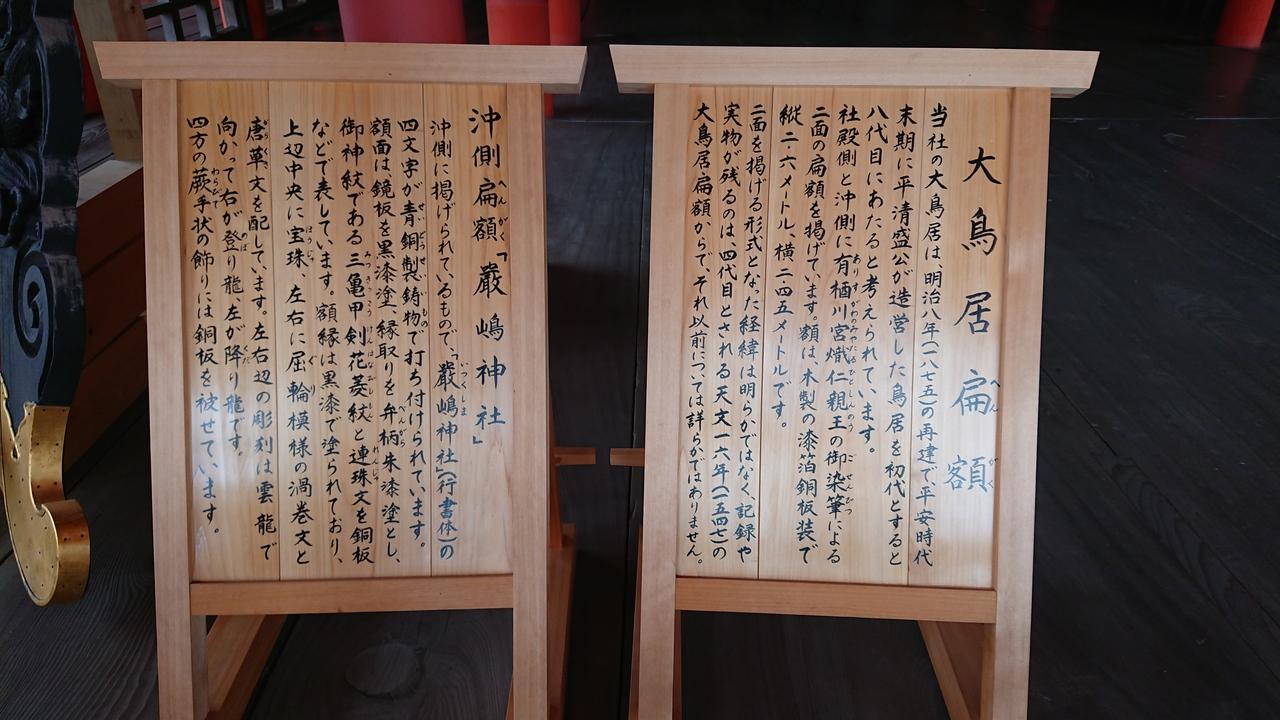 大鳥居扁額
当社の大鳥居は、明治八年(一八七五)の再建で平安時代
末期に平 清盛公が造営した鳥居を初代とすると
八代目にあたると考えられています。
社殿側と沖側に有栖川宮熾仁親王の御染筆による
二面の扁額を掲げています。額は、木製の漆箔銅板装で
縦二・六メートル、横二・四五メートルです。
二面を掲げる形式となった経緯は明らかではなく、記録や
実物が残るのは、四代目とされる天文一六年(一五四七)の
大鳥居扁額からで、それ以前については詳らかではありません。
沖側扁額「嚴嶋神社」
沖側に掲げられているもので、「嚴嶋神社」(行書体)の
四文字が青銅製鋳物で打ち付けられています。
額面は、鏡板を黒漆塗、縁取りを弁柄朱漆塗とし、
御神紋である三亀甲剣花菱紋と連珠文を銅板
などで表しています。額縁は黒漆で塗られており、
上辺中央に宝珠、左右に屈輪模様の渦巻文と
唐草文を配しています。左右辺の彫刻は雲龍で
向かって右が登り龍、左が降り龍です。
四方の蕨手状の飾りには銅板を被せています。